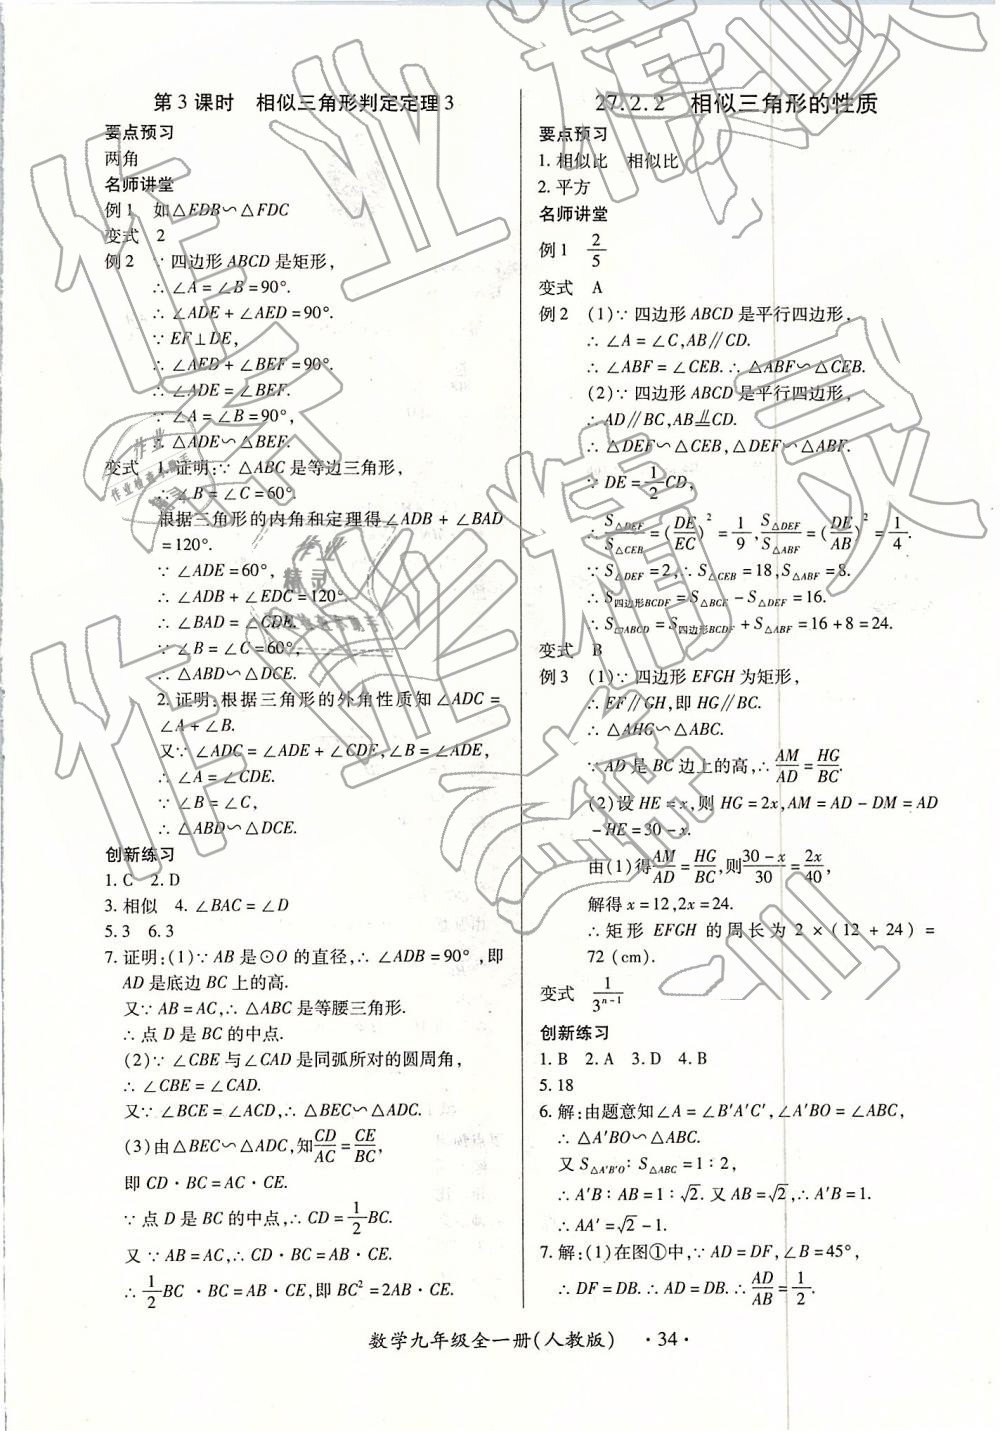 第3课时　相似三角形判定定理3
要点预习
两角
名师讲堂
例1　如△EDB∽△FDC
变式　2
例2　∵四边形ABCD是矩形，
∴∠A=∠B=90°.
∴∠ADE+∠AED=90°.
∵EF⊥DE，
∴∠AED+∠BEF=90°.
∴∠ADE=∠BEF.
∵∠A=∠B=90°，
∴△ADE∽△BEF.
变式　1.证明：∵△ABC是等边三角形，
∴∠B=∠C=60°.
根据三角形的内角和定理得∠ADB+∠BAD
=120°.
∵∠ADE=60°，
∴∠ADB+∠EDC=120°.
∴∠BAD=∠CDE.
∵∠B=∠C=60°，
∴△ABD∽△DCE.
2.证明：根据三角形的外角性质知∠ADC=
∠A+∠B.
又∵∠ADC=∠ADE+∠CDE，∠B=∠ADE，
∴∠A=∠CDE.
∵∠B=∠C，
∴△ABD∽△DCE.
创新练习
1.C　2.D
3.相似　4.∠BAC=∠D
5.3　6.3
7.证明：(1)∵AB是⊙O的直径，∴∠ADB=90°，即
AD是底边BC上的高.
又∵AB=AC，∴△ABC是等腰三角形.
∴点D是BC的中点.
(2)∵∠CBE与∠CAD是同弧所对的圆周角，
∴∠CBE=∠CAD.
又∵∠BCE=∠ACD，∴△BEC∽△ADC.
(3)由△BEC∽△ADC，知CD/AC=CE/BC，
即CD·BC=AC·CE.
∵点D是BC的中点，∴CD=1/2BC.
又∵AB=AC，∴CD·BC=AB·CE.
∴1/2BC·BC=AB·CE，即BC²=2AB·CE.
27.2.2　相似三角形的性质
要点预习
1.相似比　相似比
2.平方
名师讲堂
例1　2/5
变式　A
例2　(1)∵四边形ABCD是平行四边形，
∴∠A=∠C，AB∥CD.
∴∠ABF=∠CEB.∴△ABF∽△CEB.
(2)∵四边形ABCD是平行四边形，
∴AD∥BC，AB⫫CD.
∴△DEF∽△CEB，△DEF∽△ABF.
∵DE=1/2CD，
∴S△DEF/S△CEB=(DE/EC)²=1/9，S△DEF/S△ABF=(DE/AB)²=1/4.
∵S△DEF=2，∴S△CEB=18，S△ABF=8.
∴S四边形BCDF=S△BCE-S△DEF=16.
∴S▱ABCD=S四边形BCDF+S△ABF=16+8=24.
变式　B
例3　(1)∵四边形EFGH为矩形，
∴EF∥GH，即HG∥BC.
∴△AHG∽△ABC.
∵AD是BC边上的高，∴AM/AD=HG/BC.
(2)设HE=x，则HG=2x，AM=AD-DM=AD
-HE=30-x.
由(1)得AM/AD=HG/BC，则30-x/30=2x/40，
解得x=12，2x=24.
∴矩形EFGH的周长为2×(12+24)=
72(cm).
变式　1/3ⁿ⁻¹
创新练习
1.B　2.A　3.D　4.B
5.18
6.解：由题意知∠A=∠B′A′C′，∠A′BO=∠ABC，
∴△A′BO∽△ABC.
又S△A′B′O∶S△ABC=1∶2，
∴A′B∶AB=1∶√2.又AB=√2，∴A′B=1.
∴AA′=√2-1.
7.解：(1)在图①中，∵AD=DF，∠B=45°，
∴DF=DB.∴AD=DB.∴AD/AB=1/2.
数学九年级全一册(人教版)　·34·
作业精灵
作业精灵
作业精灵
作业
精灵
作业
精灵